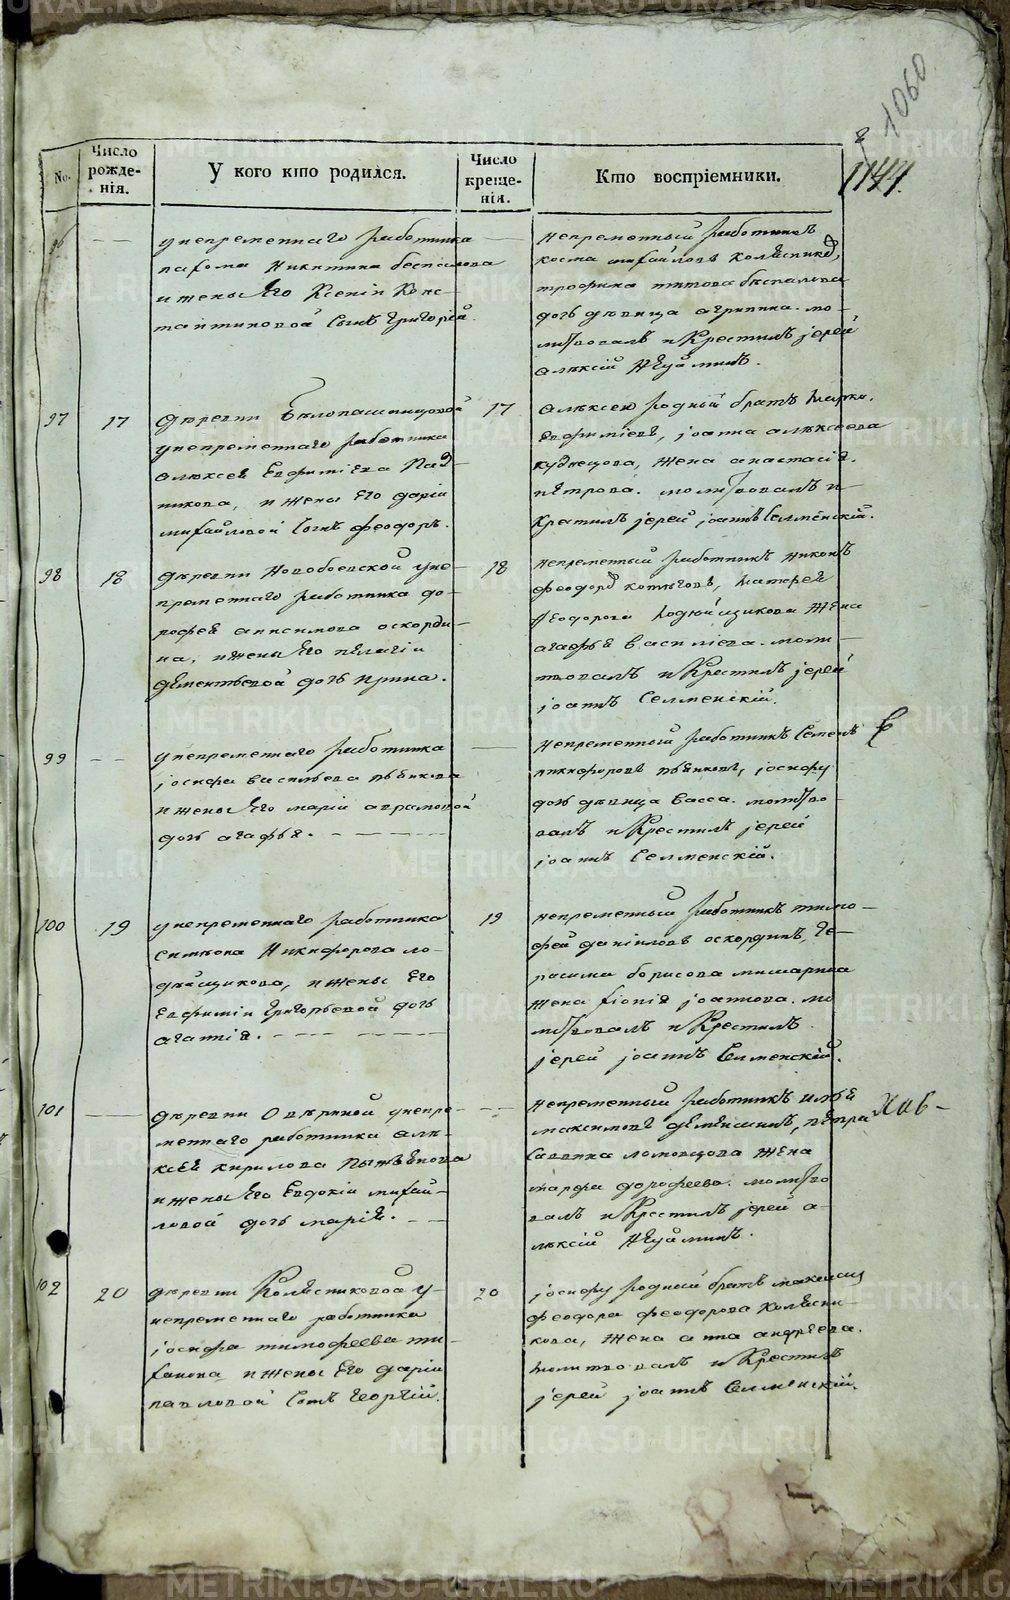 1060
1144.
No.
Число рожде-
нія.
У кого кто родился.
Число креще-
нія.
Кто воспріемники.
96 — —
у непременнаго работника
пахома никитина беспалова
и жены его Ксеніи Конс-
тантиновой Сынъ григорій.
—
непременный работникъ
косма михайловъ колѣсниковъ,
трофима титова беспалова
дочь дѣвица агрипина. мо-
литвовалъ и Крестилъ іерей
алѣксій
97
17
дѣревни Бѣлопашинцовой
у непременнаго работника
алѣксея Евфиміева
никова, и жены его даріи
михайловой Сынъ феодоръ.
17
алѣксею родный братъ Марко
Евфиміевъ, іоанна алѣксеева
кузнецова, жена анастасія
пѣтрова. молитвовалъ и
Крестилъ іерей іоаннъ Селменскій.
98
18
дѣревни Новобоевской у не-
пременнаго работника до-
рофея анисимова оскорди-
на, и жены его пѣлагіи
дѣментьевой дочь ирина.
18
непременный работникъ никонъ
феодоровъ котыговъ, Матфея
феодорова жена
агафья василіева. моли-
твовалъ и Крестилъ іерей
іоаннъ Селменскій.
99
— —
у непременнаго работника
іосифа васильева пьянкова
и жены его маріи аврамовой
дочь агафья. — — — —
—
непременный работникъ Семенъ
никифоровъ пьянковъ, іосифу
дочь дѣвица васса. молитво-
валъ и Крестилъ іерей
іоаннъ Селменскій.
100
19
у непременнаго работника
симеона Никифорова ло-
дейщикова, и жены его
Евфиміи григорьевой дочь
агапія. — — — —
19
непременный работникъ тимо-
фей даніиловъ оскординъ, ге-
расима борисова мишарина
жена іоаннова. мо
литвовалъ и Крестилъ
іерей іоаннъ Селменскій.
101
— —
дѣревни Овѣчкиной у непре-
меннаго работника алѣ-
ксея кирилова
и жены его Евдокіи михай-
ловой дочь марія. — —
— —
непременный работникъ илья
максимовъ пѣтра
Саввина ломовцова жена
марфа дорофеева. молитво
валъ и Крестилъ іерей а-
лѣксій
102
20
дѣревни Колѣсниковой у
непременнаго работника
іосифа тимофеева ти-
ханова и жены его даріи
павловой Сынъ георгій.
20
іосифу родный братъ максимъ
феодора феодорова колѣсни-
кова, жена анна андрѣева.
молитвовалъ и Крестилъ
іерей іоаннъ Селменскій.
METRIKI.GASO-URAL.RU